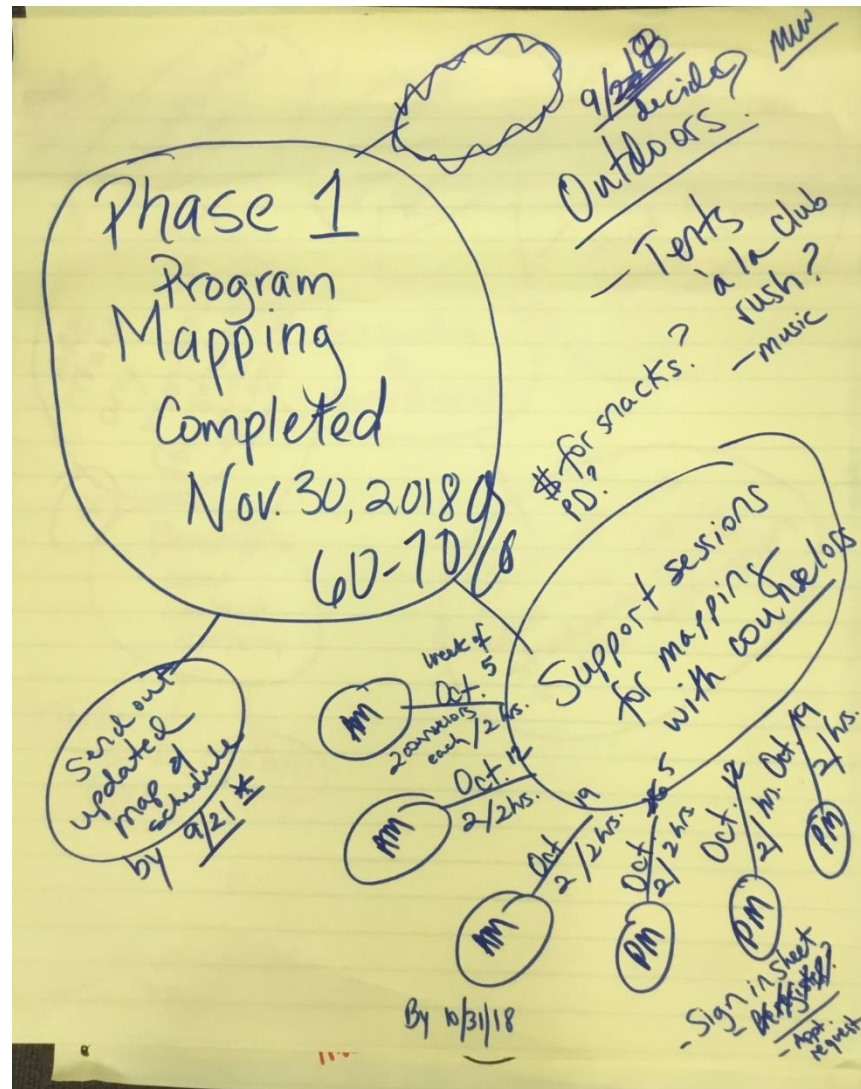 Phase 1
Program
Mapping
Completed
Nov. 30, 2018
60-70%
9/20
decide?
MW
Outdoors?
- Tents
à la club
rush?
- music
$ for snacks?
PD?
Support sessions
for mapping
with counselors
Send out
updated
map of
schedule
by 9/21 *
week of
AM
Oct. 5
2 counselors
each / 2 hrs.
AM
Oct. 12
2/2 hrs.
AM
Oct 19
2/2 hrs.
PM
Oct. 5
2/2 hrs
PM
Oct. 12
2/ hrs.
PM
Oct. 19
2/ hrs.
- Sign in sheet
- Appt.
request
By 10/31/18